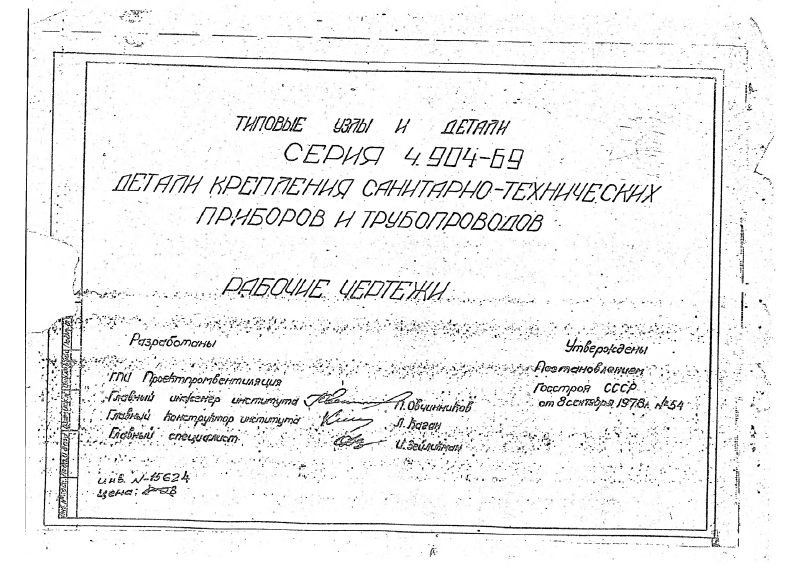 ТИПОВЫЕ УЗЛЫ И ДЕТАЛИ
СЕРИЯ 4.904-69
ДЕТАЛИ КРЕПЛЕНИЯ САНИТАРНО-ТЕХНИЧЕСКИХ
ПРИБОРОВ И ТРУБОПРОВОДОВ
РАБОЧИЕ ЧЕРТЕЖИ
Разработаны
ГПИ Проектпромвентиляция
Главный инженер института П. Овчинников
Главный конструктор института Л. Каган
Главный специалист
Утверждены
Постановлением
Госстроя СССР
от 8 сентября 1978г. №54
инв. N-15624
цена: